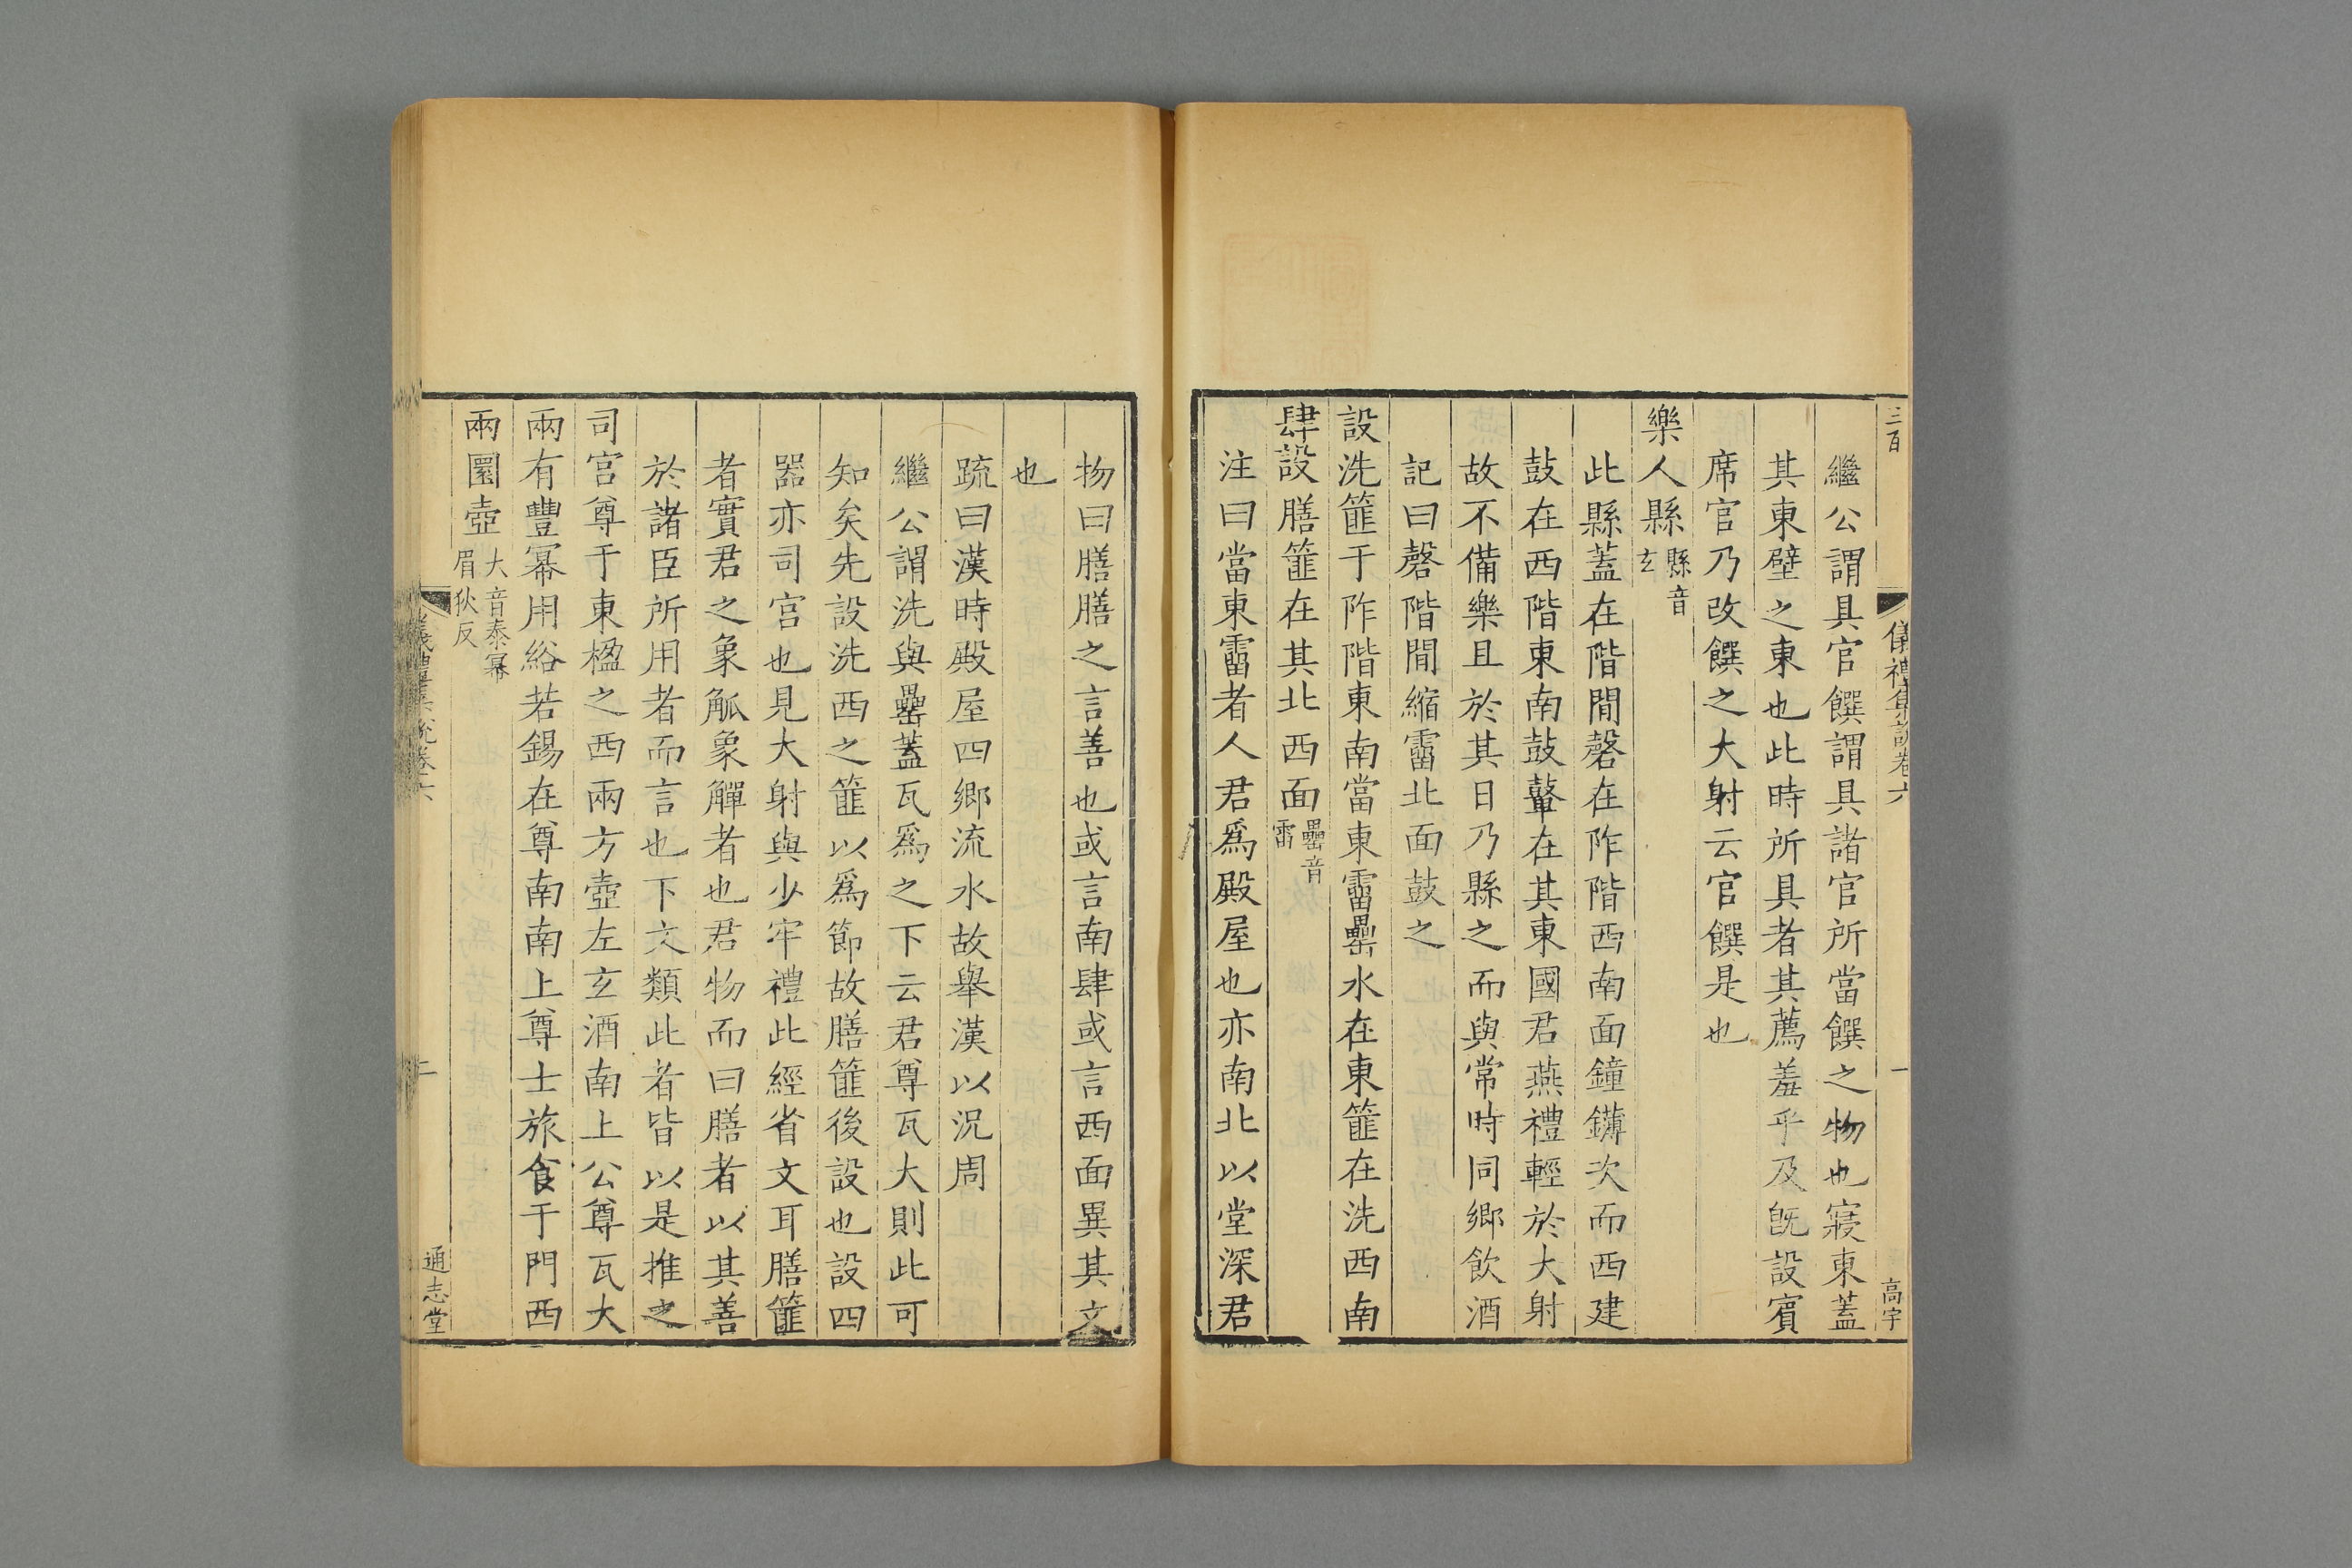 三百
儀禮集說卷六
一
高宇
繼公謂具官饌謂具諸官所當饌之物也寢東蓋
其東壁之東也此時所具者其薦羞乎及旣設賓
席官乃改饌之大射云官饌是也
樂人縣縣音玄
此縣蓋在階間磬在阼階西南面鐘鑮次而西建
鼓在西階東南鼓鼙在其東國君燕禮輕於大射
故不備樂且於其日乃縣之而與常時同鄉飲酒
記曰磬階間縮霤北面鼓之
設洗篚于阼階東南當東霤罍水在東篚在洗西南
肆設膳篚在其北西面罍音雷
注曰當東霤者人君爲殿屋也亦南北以堂深君
物曰膳膳之言善也或言南肆或言西面異其文
也
疏曰漢時殿屋四鄉流水故舉漢以況周
繼公謂洗與罍蓋瓦爲之下云君尊瓦大則此可
知矣先設洗西之篚以爲節故膳篚後設也設四
器亦司宮也見大射與少牢禮此經省文耳膳篚
者實君之象觚象觶者也君物而曰膳者以其善
於諸臣所用者而言也下文類此者皆以是推之
司宮尊于東楹之西兩方壺左玄酒南上公尊瓦大
兩有豐冪用綌若錫在尊南南上尊士旅食于門西
兩圜壺大音泰冪眉狄反
儀禮集說卷六
二
通志堂